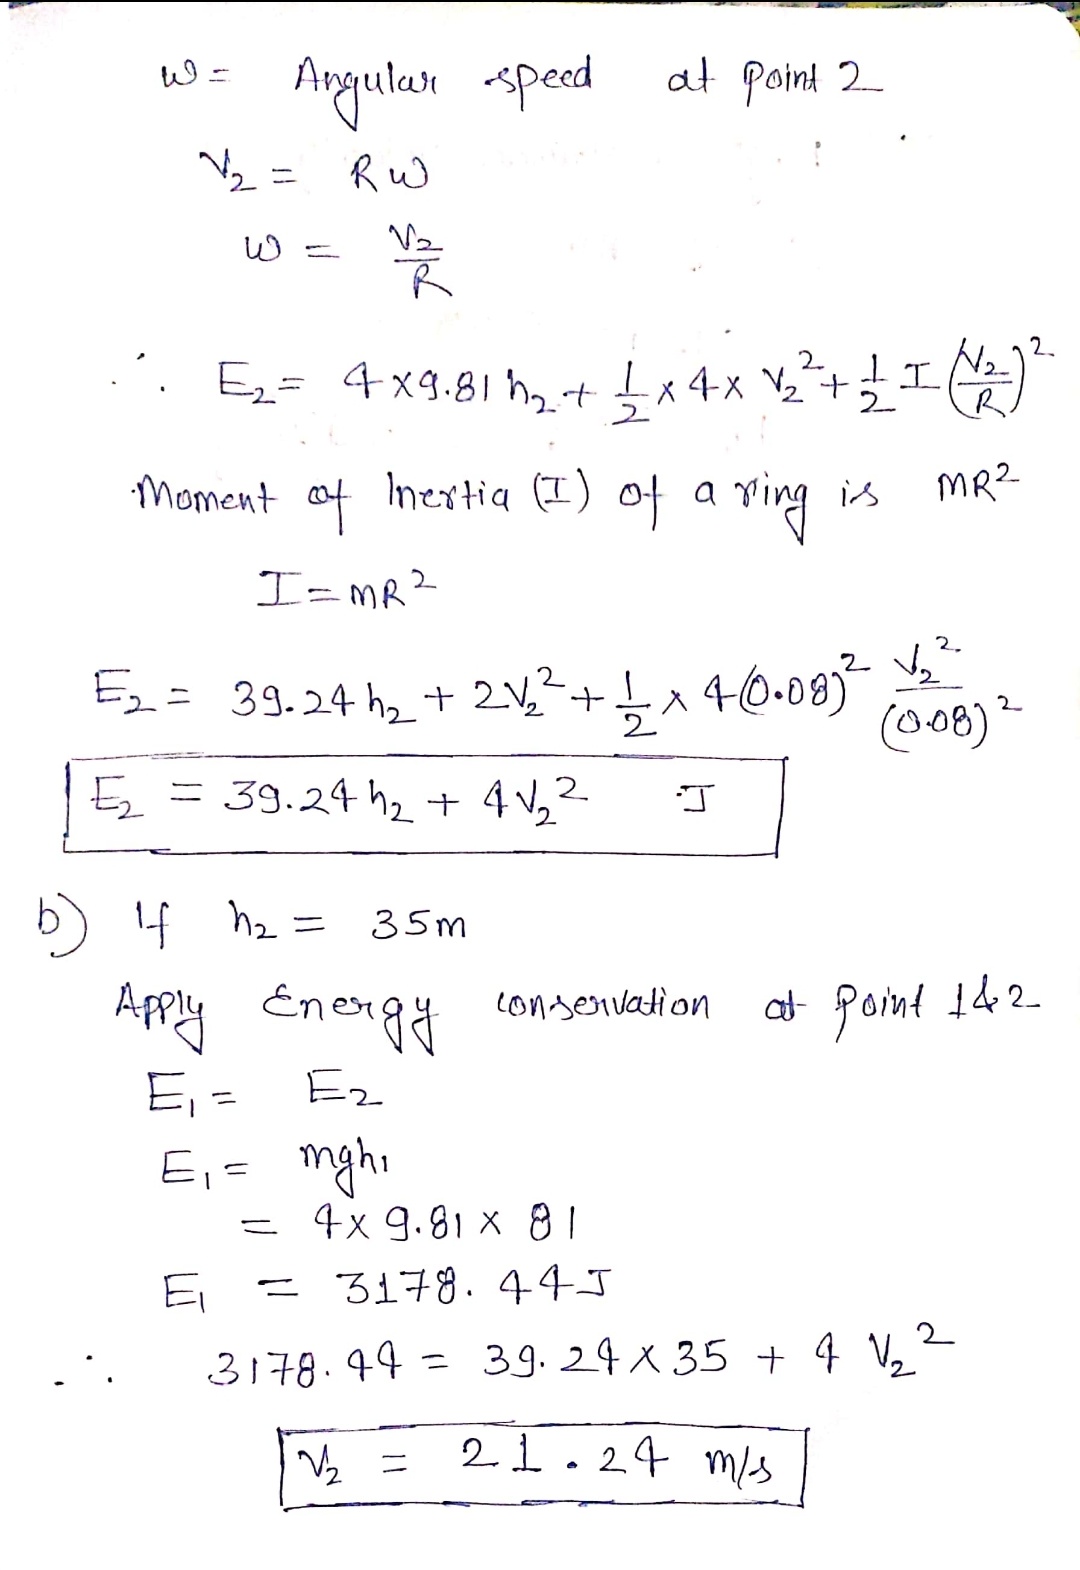 ω = Angular speed at point 2
V₂ = Rω
ω = V₂/R
∴ E₂ = 4×9.81 h₂ + 1/2 × 4 × V₂² + 1/2 I (V₂/R)²
Moment of Inertia (I) of a ring is MR²
I = MR²
E₂ = 39.24 h₂ + 2V₂² + 1/2 × 4(0.08)² V₂²/(0.08)²
E₂ = 39.24 h₂ + 4V₂² J
b) If h₂ = 35m
Apply Energy conservation at point 1&2
E₁ = E₂
E₁ = mgh₁
= 4×9.81×81
E₁ = 3178.44J
∴ 3178.44 = 39.24×35 + 4V₂²
V₂ = 21.24 m/s